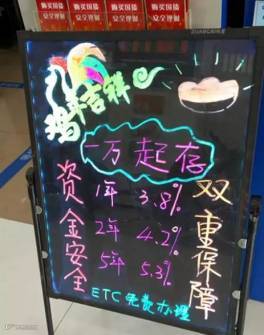 购买国债
安全理财
购买国债
安全理财
购买国债
安全理财
鸡年吉祥
一万起存
资金安全
1年 3.8%
2年 4.2%
5年 5.3%
双重保障
ETC 免费办理